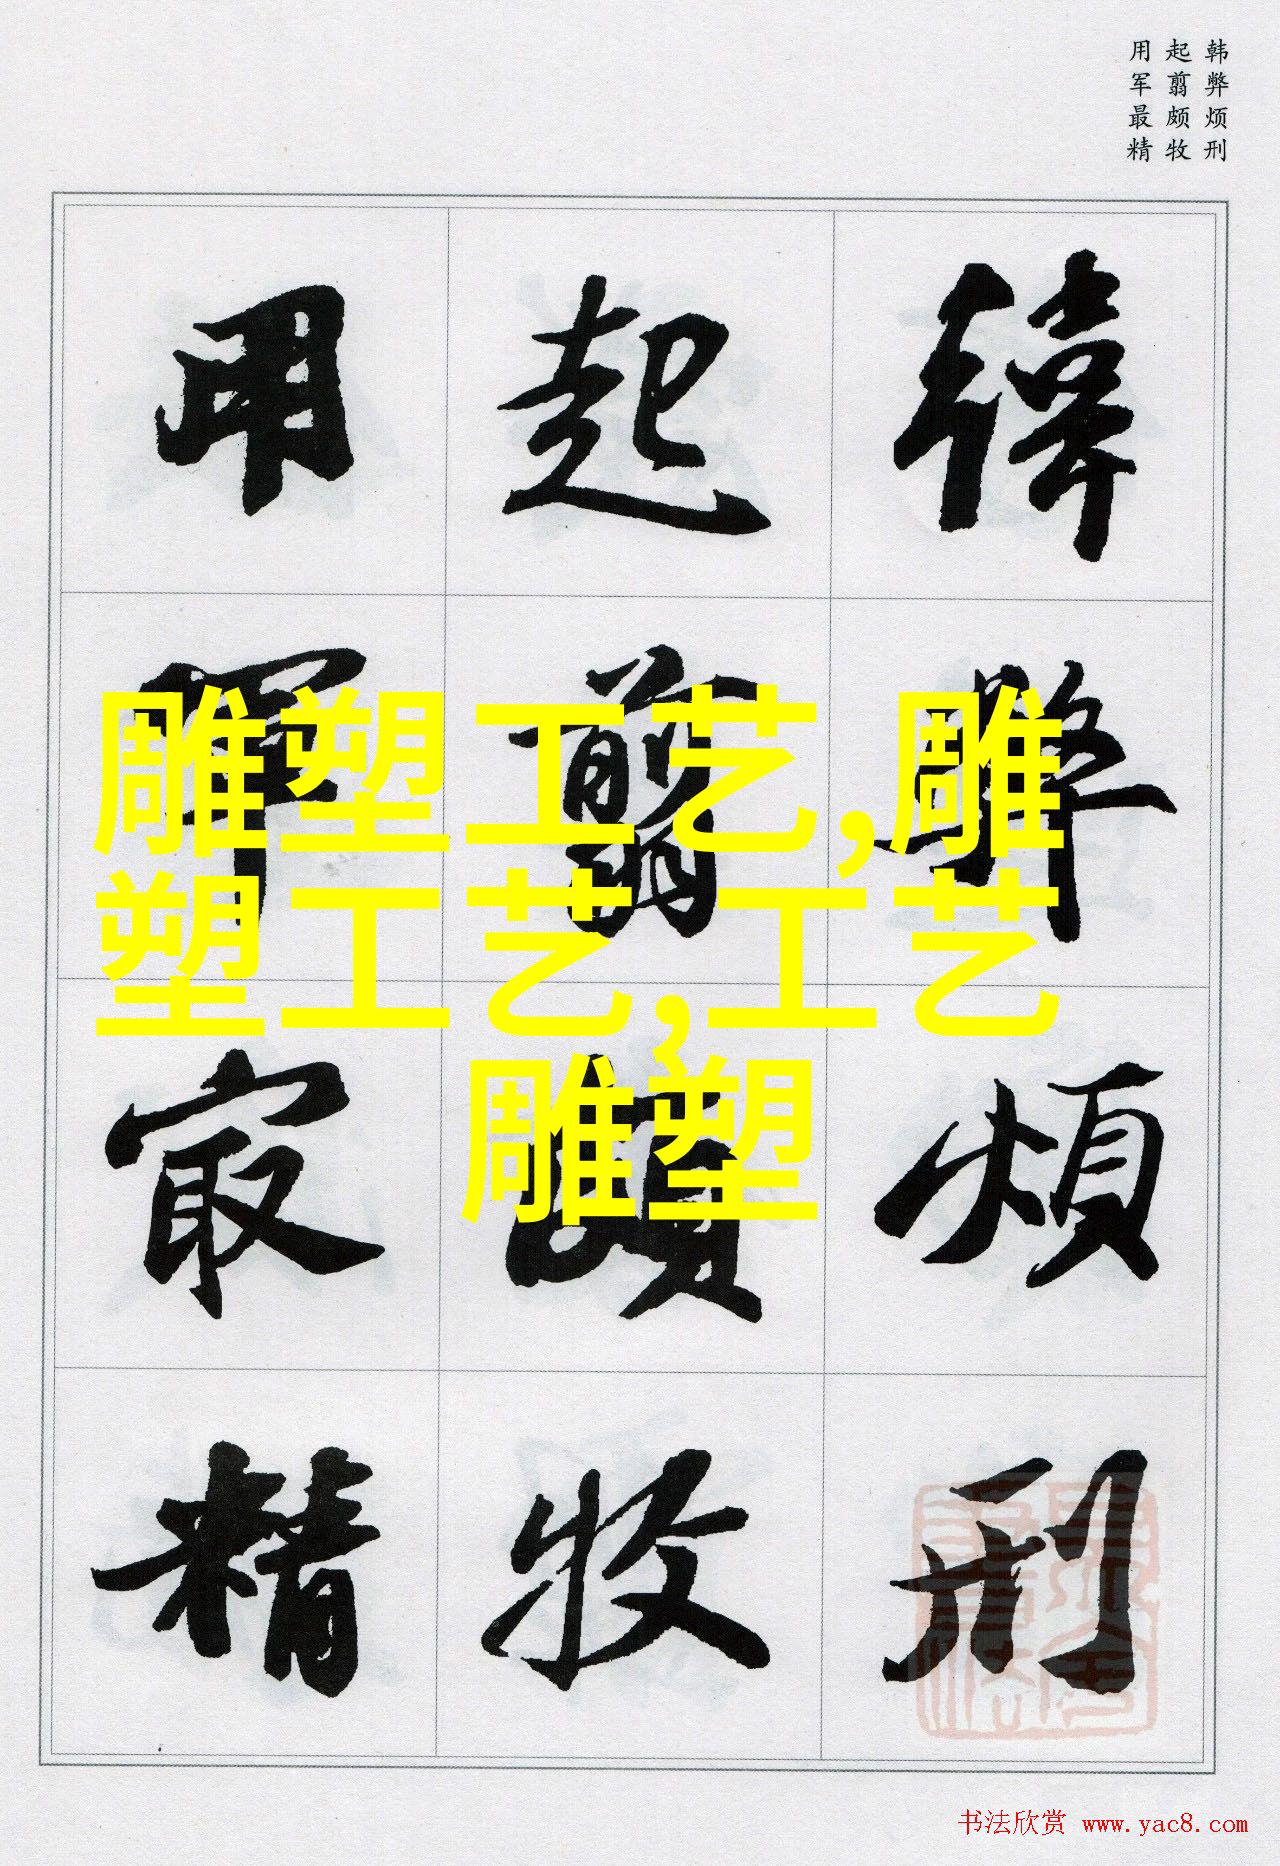 韩弊烦刑
起翦颇牧
用军最精
韓弊煩刑
起翦頗牧
用軍最精
雕塑工艺,雕
塑工艺,工艺
雕塑
书法欣赏 www.yac8.com